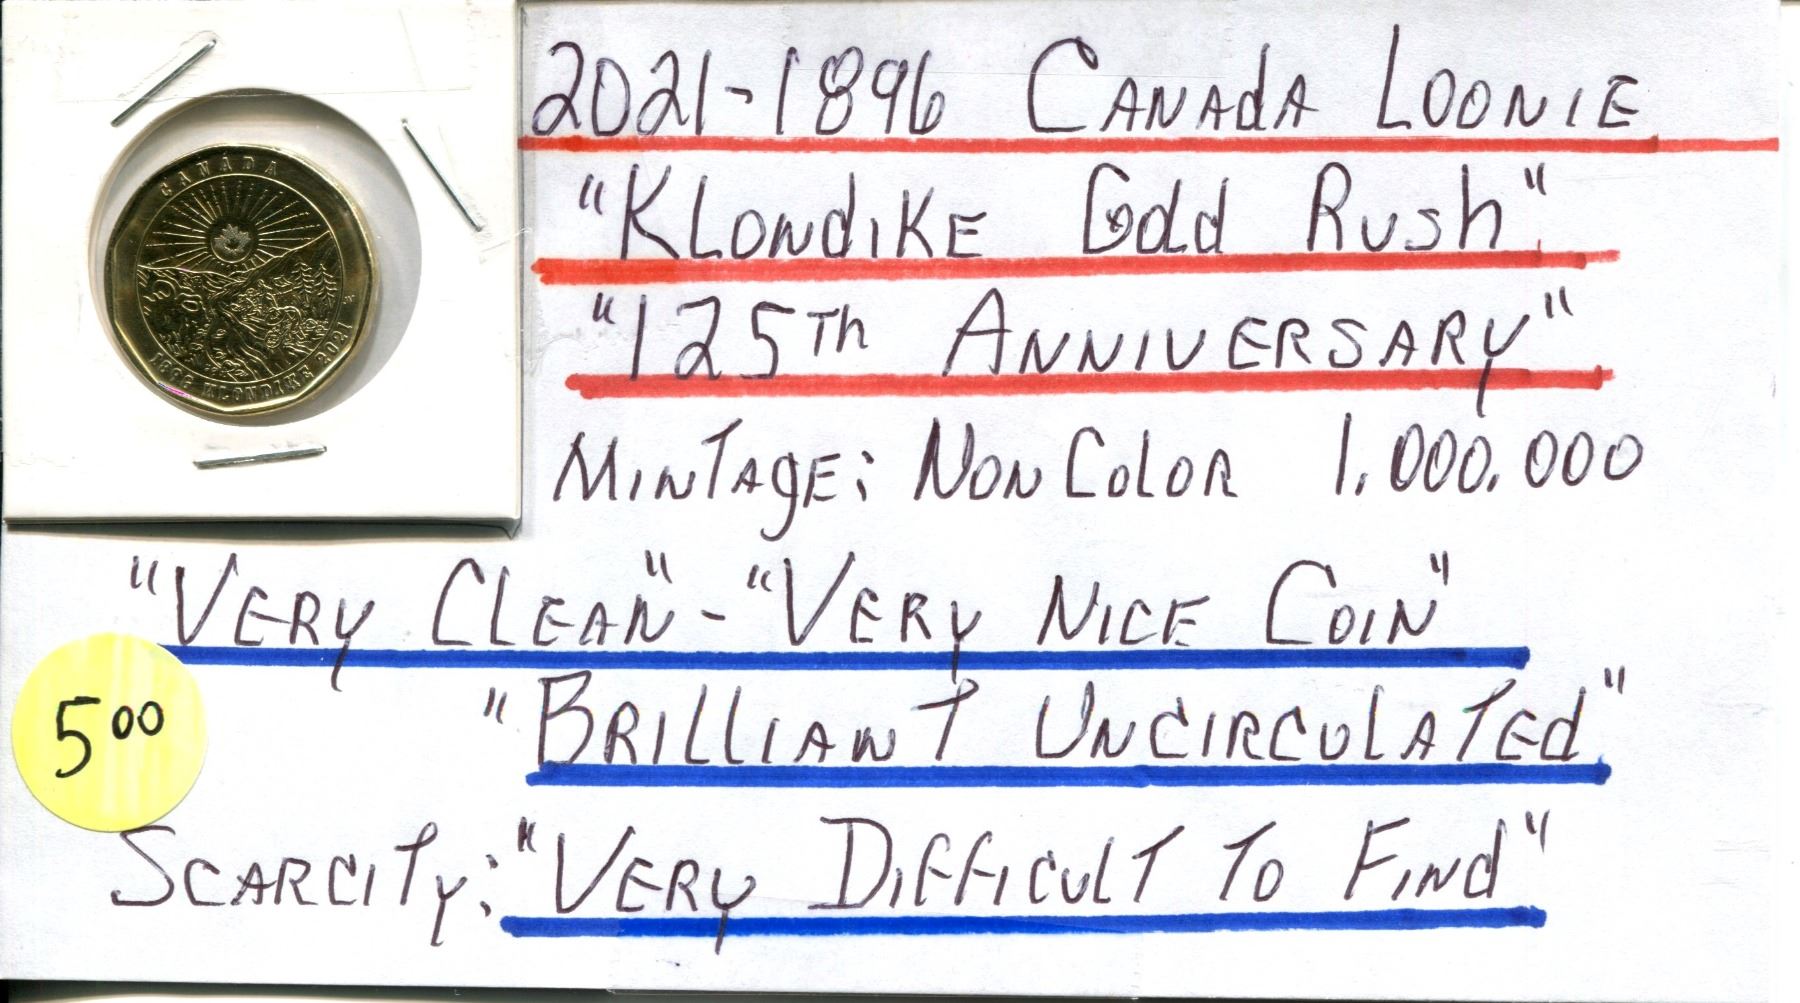 CANADA
1896 KLONDIKE 2021
2021-1896 CANAdA LOONIE
"KLONdIKE Gold Rush"
"125Th ANNIVERSARY"
MINTAgE: NON COlOR 1.000.000
"VERY CLEAN"-"VERY NICE COIN"
"BRILLIANT UNCIRCULATEd"
5.00
SCARCITY: "VERY DIFFICULT TO FINd"